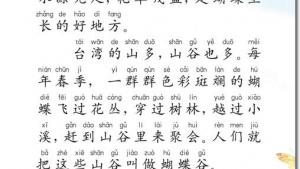 水源充足，花草茂盛，是蝴蝶生
zhǎng de hǎo dì fang
长的好地方。
tái wān de shān duō shān gǔ yě duō měi
台湾的山多，山谷也多。每
nián chūn jì yì qún qún sè cǎi bān lán de hú
年春季，一群群色彩斑斓的蝴
dié fēi guò huā cóng chuān guò shù lín yuè guò xiǎo
蝶飞过花丛，穿过树林，越过小
xī gǎn dào shān gǔ lǐ lái jù huì rén men jiù
溪，赶到山谷里来聚会。人们就
bǎ zhè xiē shān gǔ jiào zuò hú dié gǔ
把这些山谷叫做蝴蝶谷。